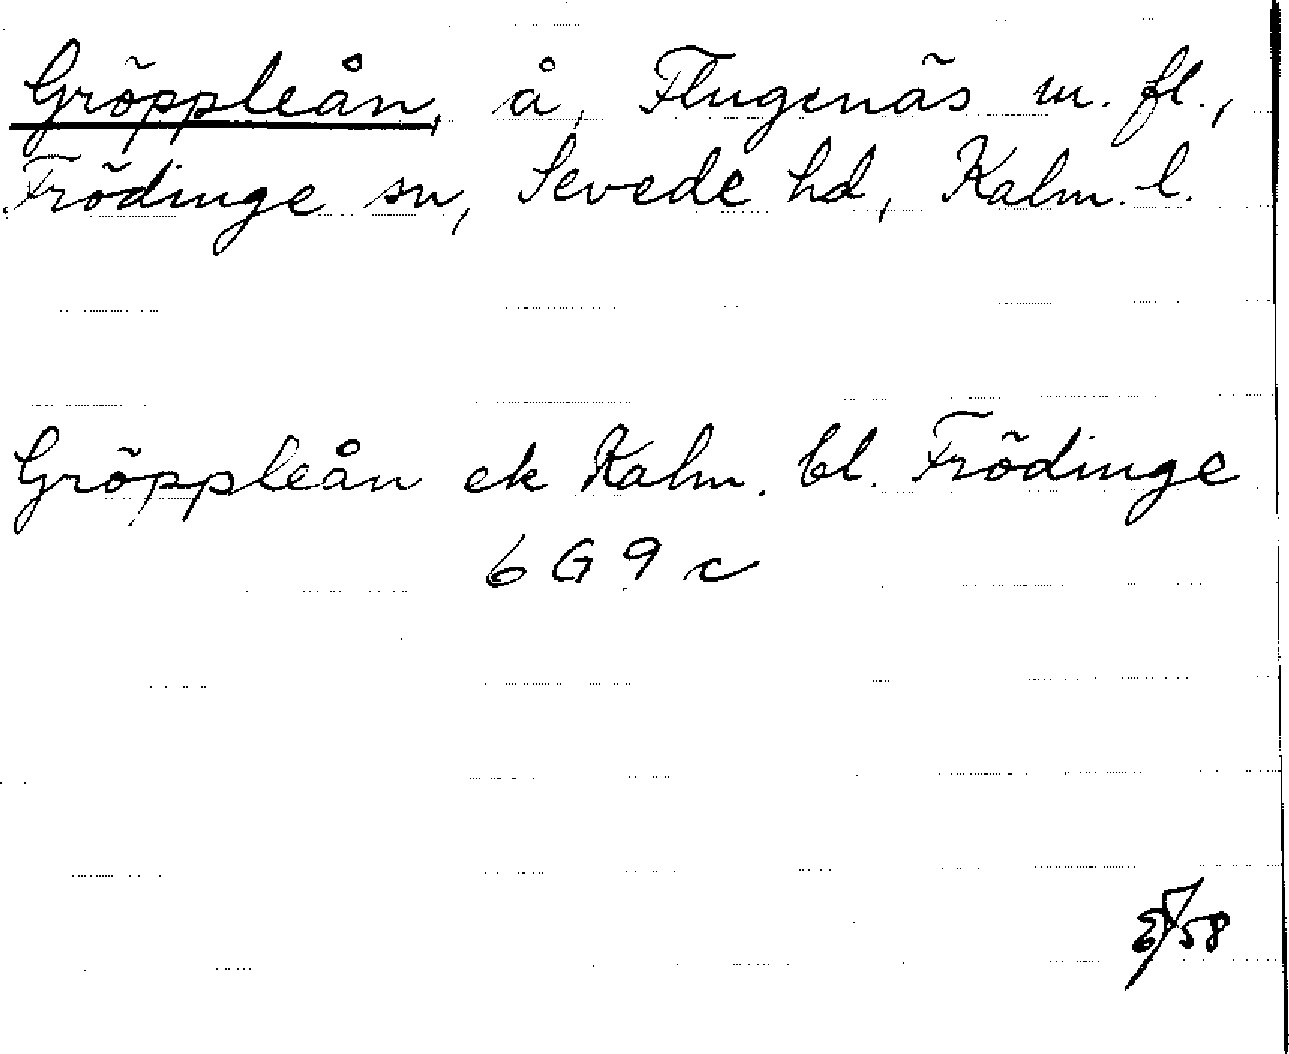 Gröppleån, å, Flugenäs m. fl.,
Frödinge sn, Sevede hd, Kalm. l.
Gröppleån ek Kalm. bl. Frödinge
6 G 9 c